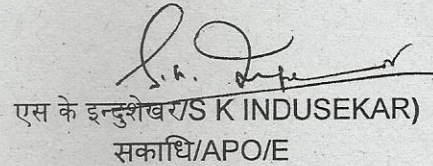 एस के इन्दुशेखर/S K INDUSEKAR)
सकाधि/APO/E